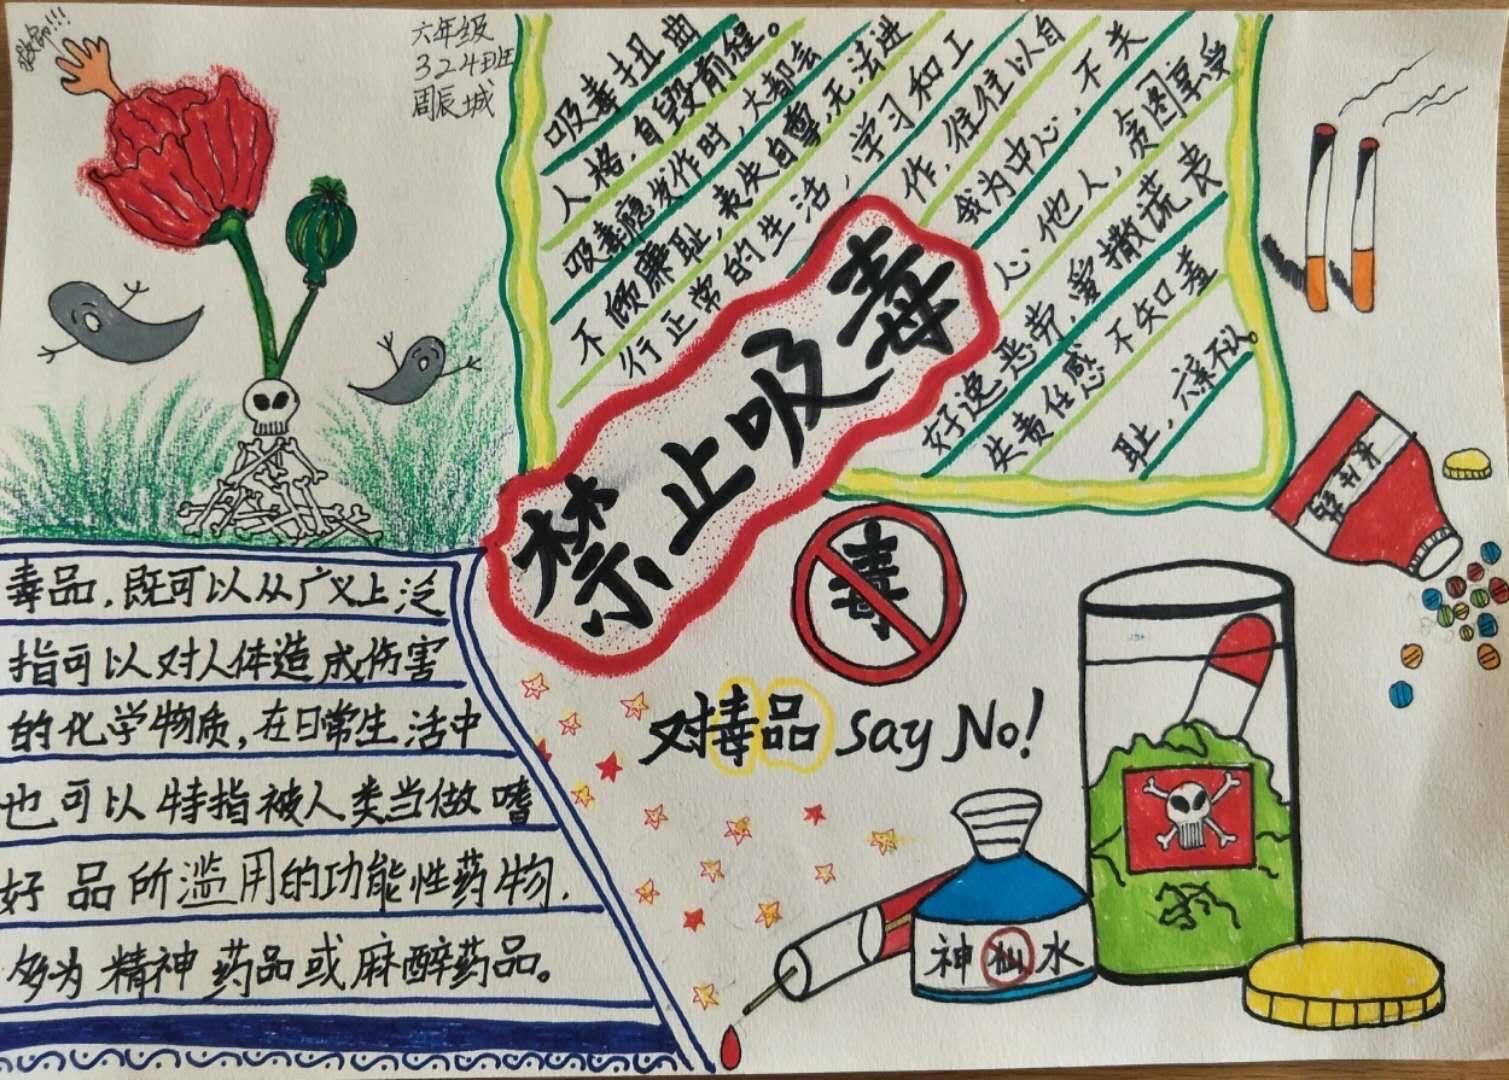 救命!!!
六年级
324班
周辰城
吸毒扭曲
人格，自毁前程。
吸毒瘾发作时，大都会
不顾廉耻，丧失自尊，无法进
行正常的生活，学习和工
作，往往以自
我为中心，不关
心他人，贪图享受
好逸恶劳，爱撒谎丧
失责任感 不知羞
耻，六亲不认。
禁止吸毒
毒
对毒品 Say No!
毒品，既可以从广义上泛
指可以对人体造成伤害
的化学物质，在日常生活中
也可以特指被人类当做嗜
好品所滥用的功能性药物，
多为精神药品或麻醉药品。
神仙水